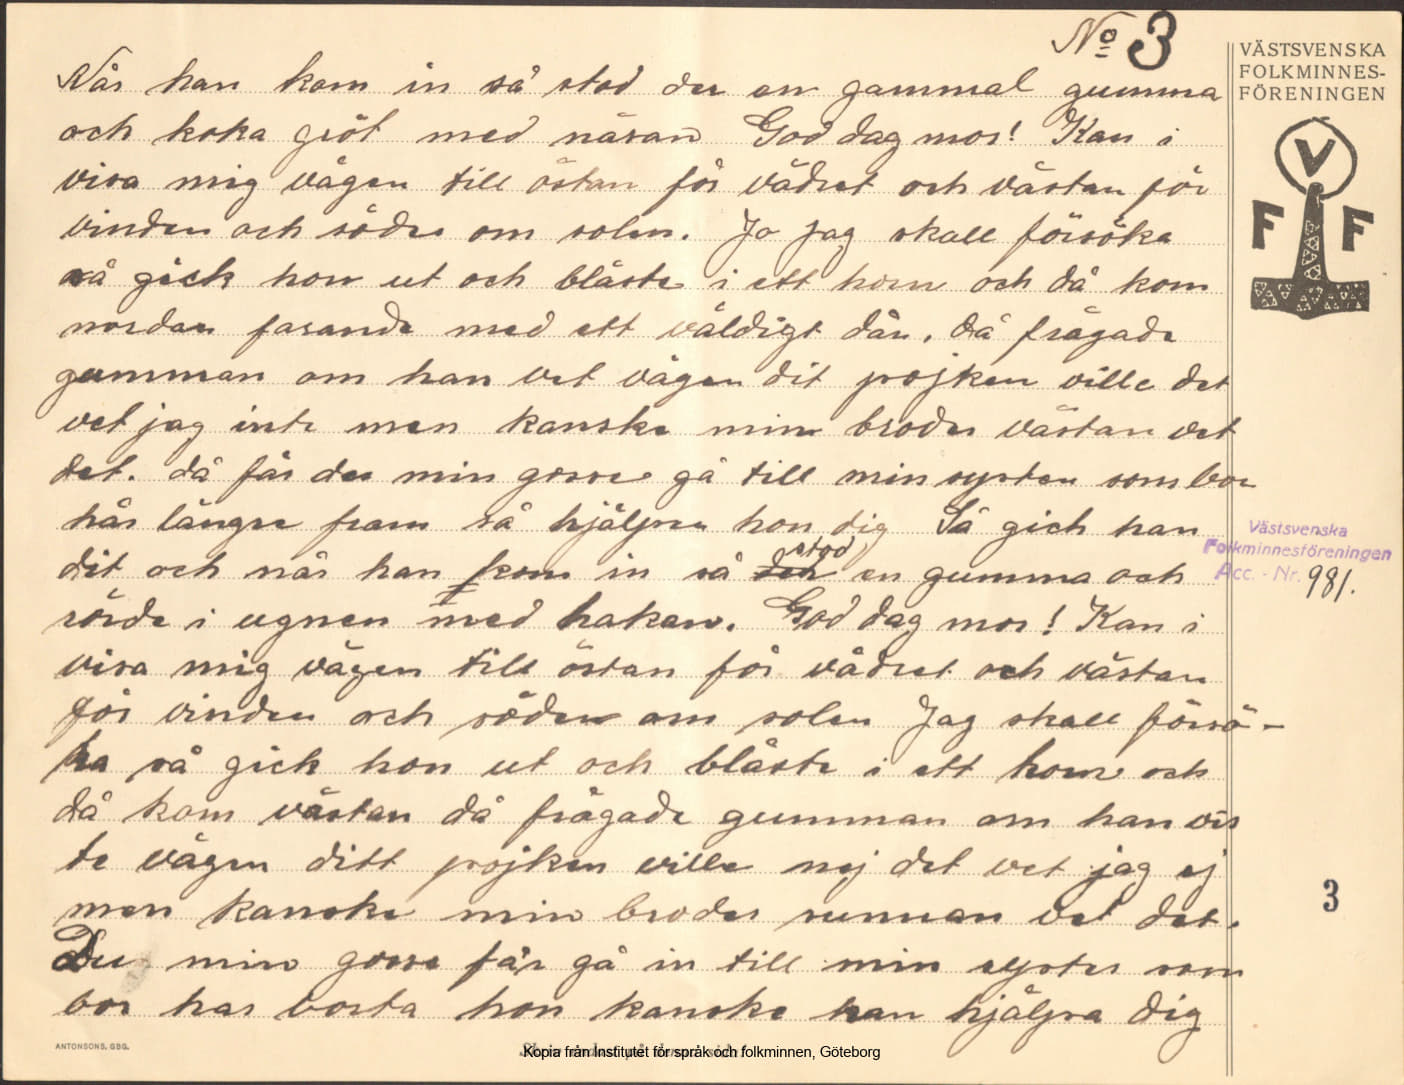 No 3
När han kom in så stod der en gammal gumma
och koka gröt med näsan God dag mor! Kan i
visa mig vägen till östan för vädret och västan för
vinden och söder om solen. Jo jag skall försöka
så gick hon ut och blåste i ett horn och då kom
nordan farande med ett väldigt dån. då frågade
gumman om han vet vägen dit pojken ville det
vet jag inte men kanske min broder västan vet
det. då får du min gosse gå till min syster som bor
här längre fram så hjälper hon dig Så gick han
dit och när han kom in så stod en gumma och
rörde i ugnen med hakan. God dag mor! Kan i
visa mig vägen till östan för vädret och västan
för vinden och söder om solen Jag skall försö-
ka så gick hon ut och blåste i ett horn och
då kom västan då frågade gumman om han vis
te vägen ditt pojken ville nej det vet jag ej
men kanske min broder sunnan vet det.
Du min gosse får gå in till min syster som
bor har borta hon kanske kan hjälpa dig
VÄSTSVENSKA
FOLKMINNES-
FÖRENINGEN
V
F F
Västsvenska
Folkminnesföreningen
Acc. - Nr. 981.
3
ANTONSONS, GBG.
Kopia från Institutet för språk och folkminnen, Göteborg